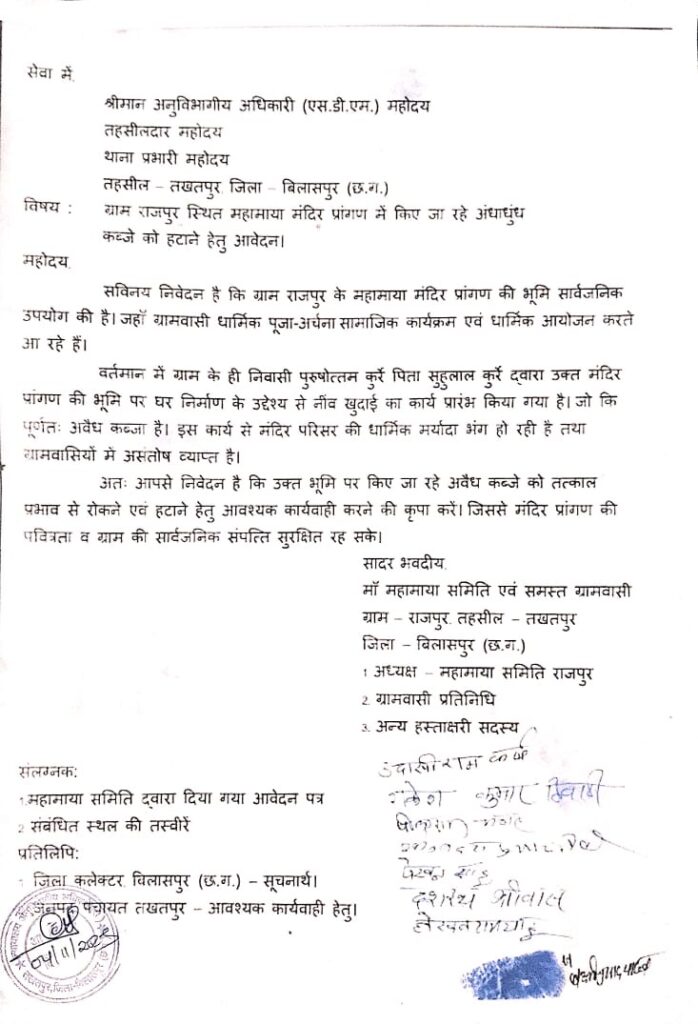 सेवा में,
श्रीमान अनुविभागीय अधिकारी (एस.डी.एम.) महोदय
तहसीलदार महोदय
थाना प्रभारी महोदय
तहसील – तखतपुर, जिला – बिलासपुर (छ.ग.)
विषय : ग्राम राजपुर स्थित महामाया मंदिर प्रांगण में किए जा रहे अंधाधुंध
कब्जे को हटाने हेतु आवेदन।
महोदय,
सविनय निवेदन है कि ग्राम राजपुर के महामाया मंदिर प्रांगण की भूमि सार्वजनिक
उपयोग की है। जहाँ ग्रामवासी धार्मिक पूजा-अर्चना सामाजिक कार्यक्रम एवं धार्मिक आयोजन करते
आ रहे हैं।
वर्तमान में ग्राम के ही निवासी पुरुषोत्तम कुर्रे पिता सुहुलाल कुर्रे द्वारा उक्त मंदिर
प्रांगण की भूमि पर घर निर्माण के उद्देश्य से नींव खुदाई का कार्य प्रारंभ किया गया है। जो कि
पूर्णतः अवैध कब्जा है। इस कार्य से मंदिर परिसर की धार्मिक मर्यादा भंग हो रही है तथा
ग्रामवासियों में असंतोष व्याप्त है।
अतः आपसे निवेदन है कि उक्त भूमि पर किए जा रहे अवैध कब्जे को तत्काल
प्रभाव से रोकने एवं हटाने हेतु आवश्यक कार्यवाही करने की कृपा करें। जिससे मंदिर प्रांगण की
पवित्रता व ग्राम की सार्वजनिक संपत्ति सुरक्षित रह सके।
सादर भवदीय,
माँ महामाया समिति एवं समस्त ग्रामवासी
ग्राम – राजपुर, तहसील – तखतपुर
जिला – बिलासपुर (छ.ग.)
1. अध्यक्ष – महामाया समिति राजपुर
2. ग्रामवासी प्रतिनिधि
3. अन्य हस्ताक्षरी सदस्य
संलग्नक:
1. महामाया समिति द्वारा दिया गया आवेदन पत्र
2. संबंधित स्थल की तस्वीरें
प्रतिलिपि:
1. जिला कलेक्टर, बिलासपुर (छ.ग.) – सूचनार्थ।
जनपद पंचायत तखतपुर – आवश्यक कार्यवाही हेतु।
कुमार